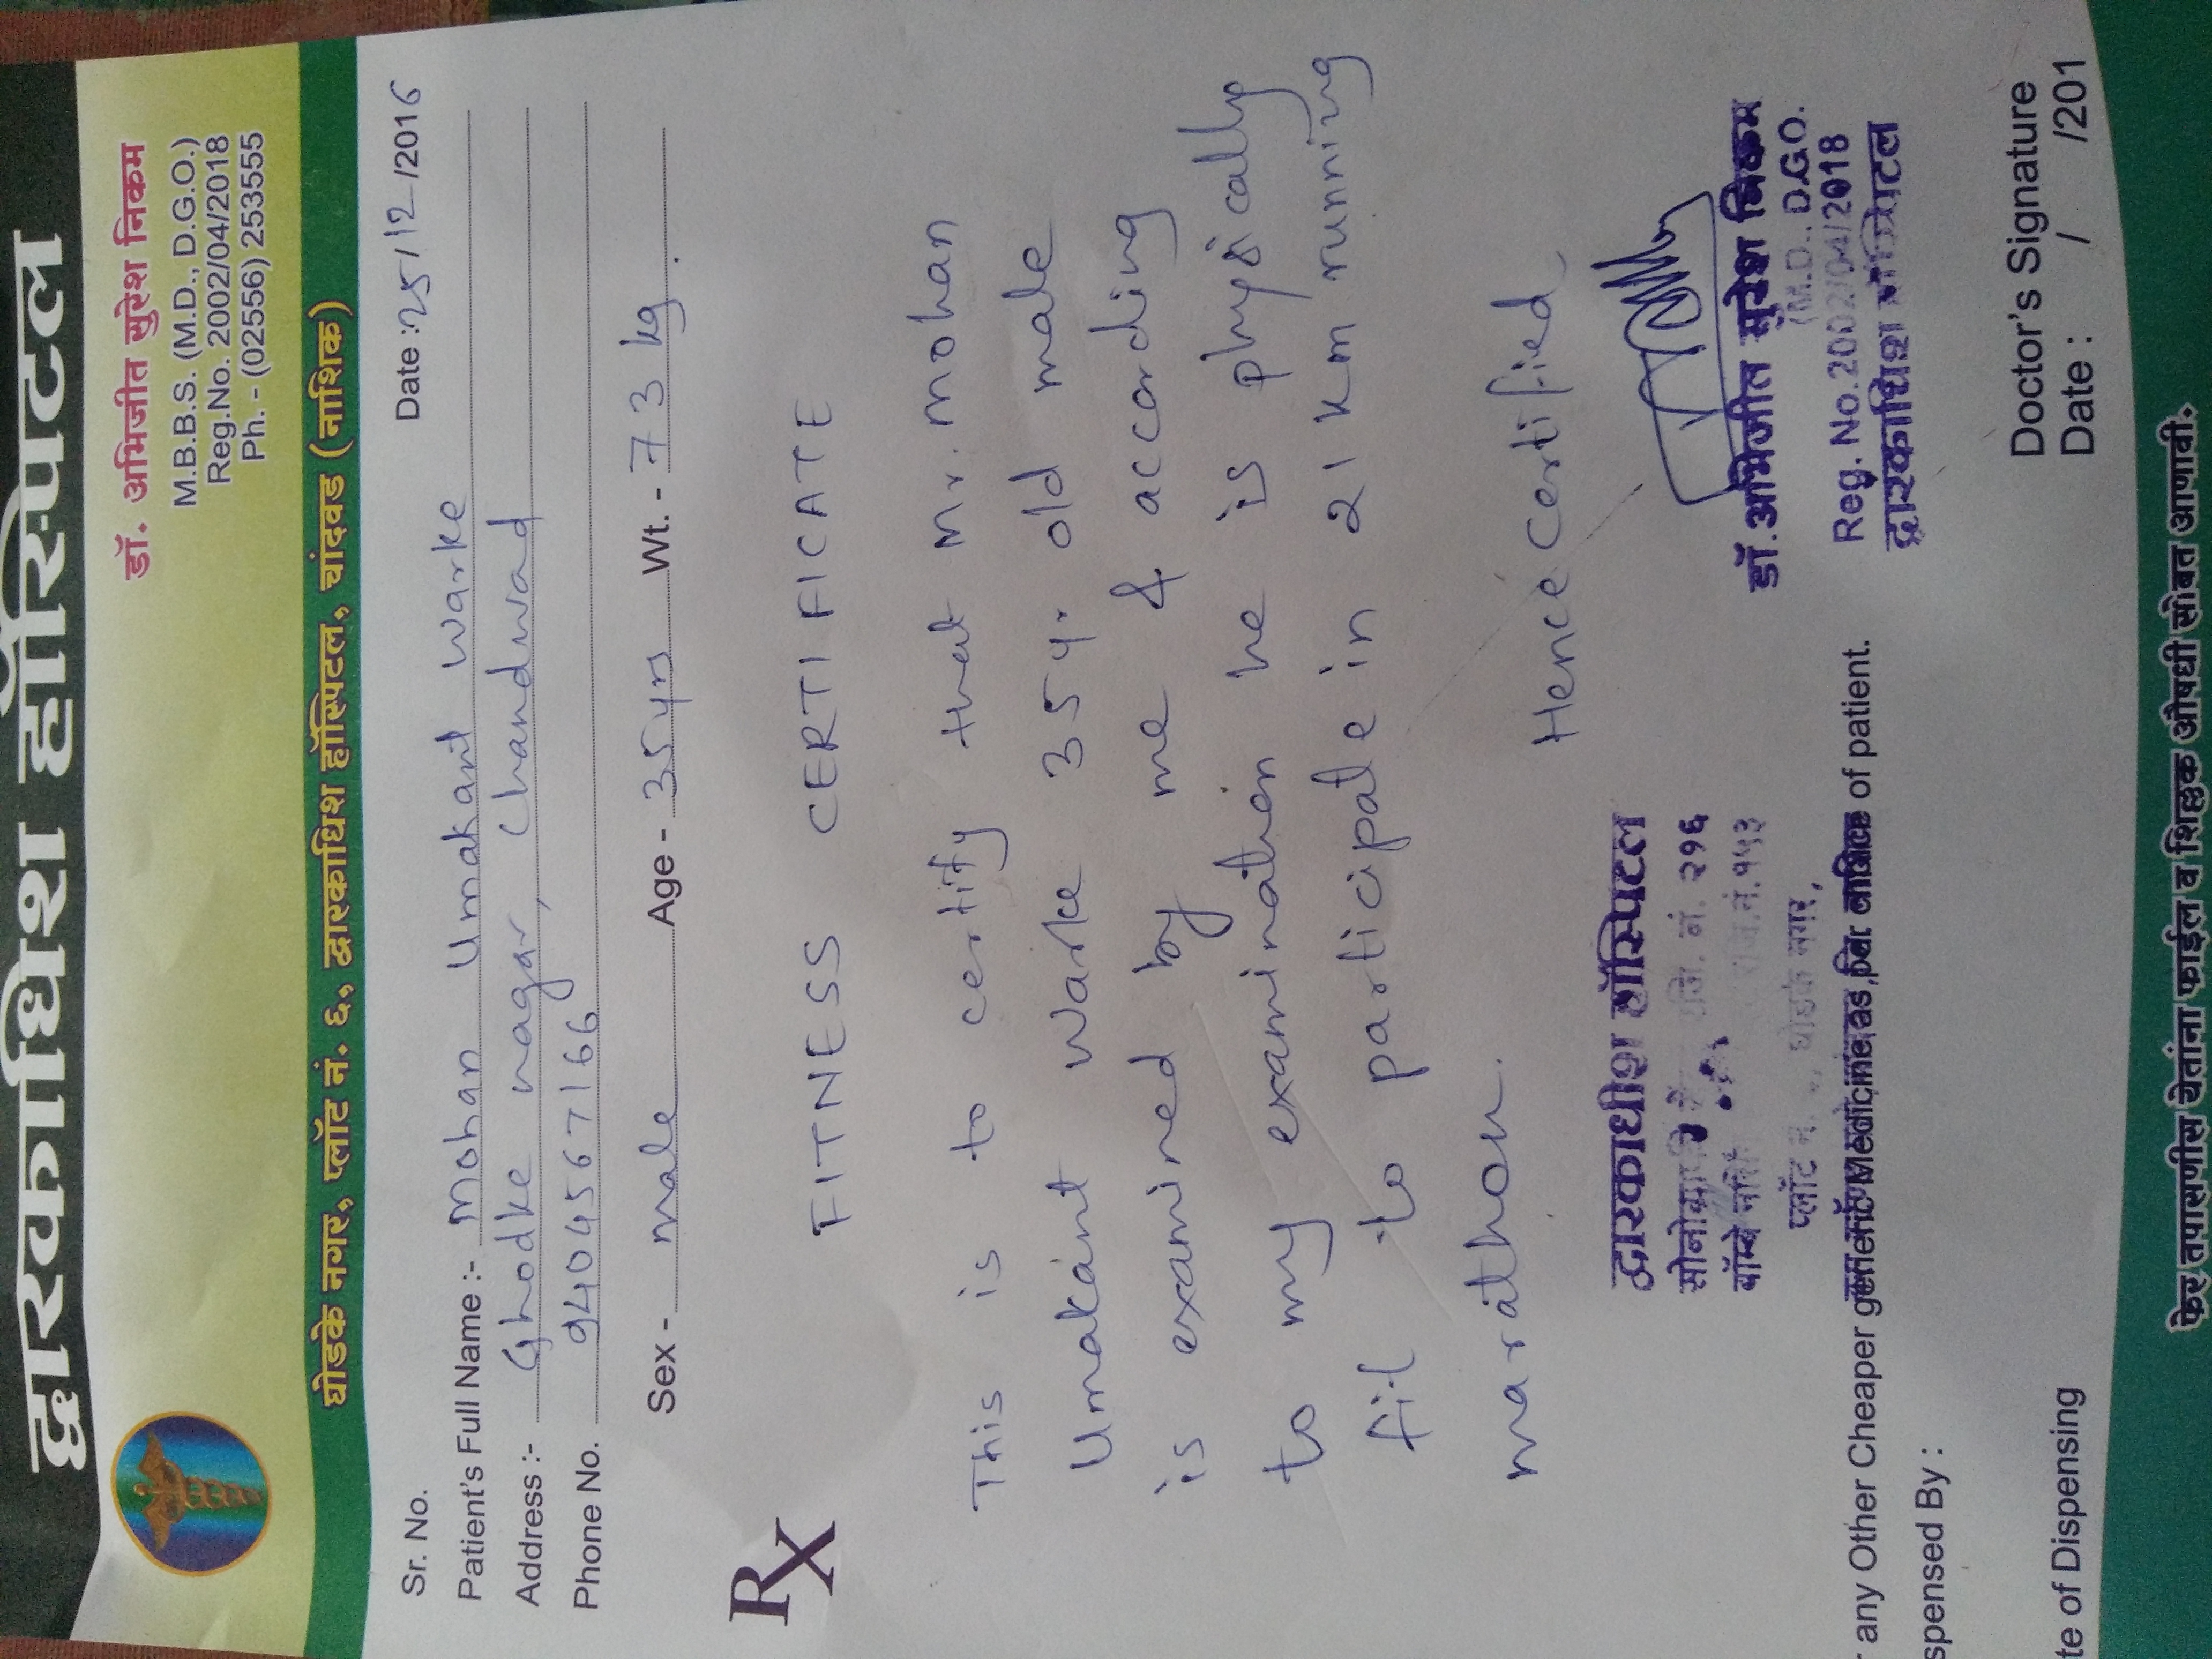 द्वारकाधिश हॉस्पिटल
डॉ. अभिजीत सुरेश निकम
M.B.B.S. (M.D., D.G.O.)
Reg.No. 2002/04/2018
Ph. - (02556) 253555
घोडके नगर, प्लॉट नं. ६, द्वारकाधिश हॉस्पिटल, चांदवड (नाशिक)
Sr. No. Date : 25/12/2016
Patient's Full Name :- Mohan Umakant Warke
Address :- Ghodke nagar, Chandwad
Phone No. 9404567166
Sex - male Age - 35yrs Wt. - 73 kg.
Rx
FITNESS CERTIFICATE
This is to certify that Mr. Mohan
Umakant Warke 35 yr old male
is examined by me & according
to my examination he is physically
fit to participate in 21 km running
marathon.
Hence Certified
द्वारकाधीश हॉस्पिटल
नं. २१६
बॉम्बे नर्सिंग
प्लॉट नं. घोडके नगर,
डॉ. अभिजीत सुरेश निकम
(M.D., D.G.O.
Reg. No. 2002/04/2018
द्वारकाधिश हॉस्पिटल
any Other Cheaper generic Medicine, as per of patient.
spensed By :
Doctor's Signature
te of Dispensing Date : / /201
फेर तपासणीस येतांना फाईल व शिल्लक औषधी सोबत आणावी.